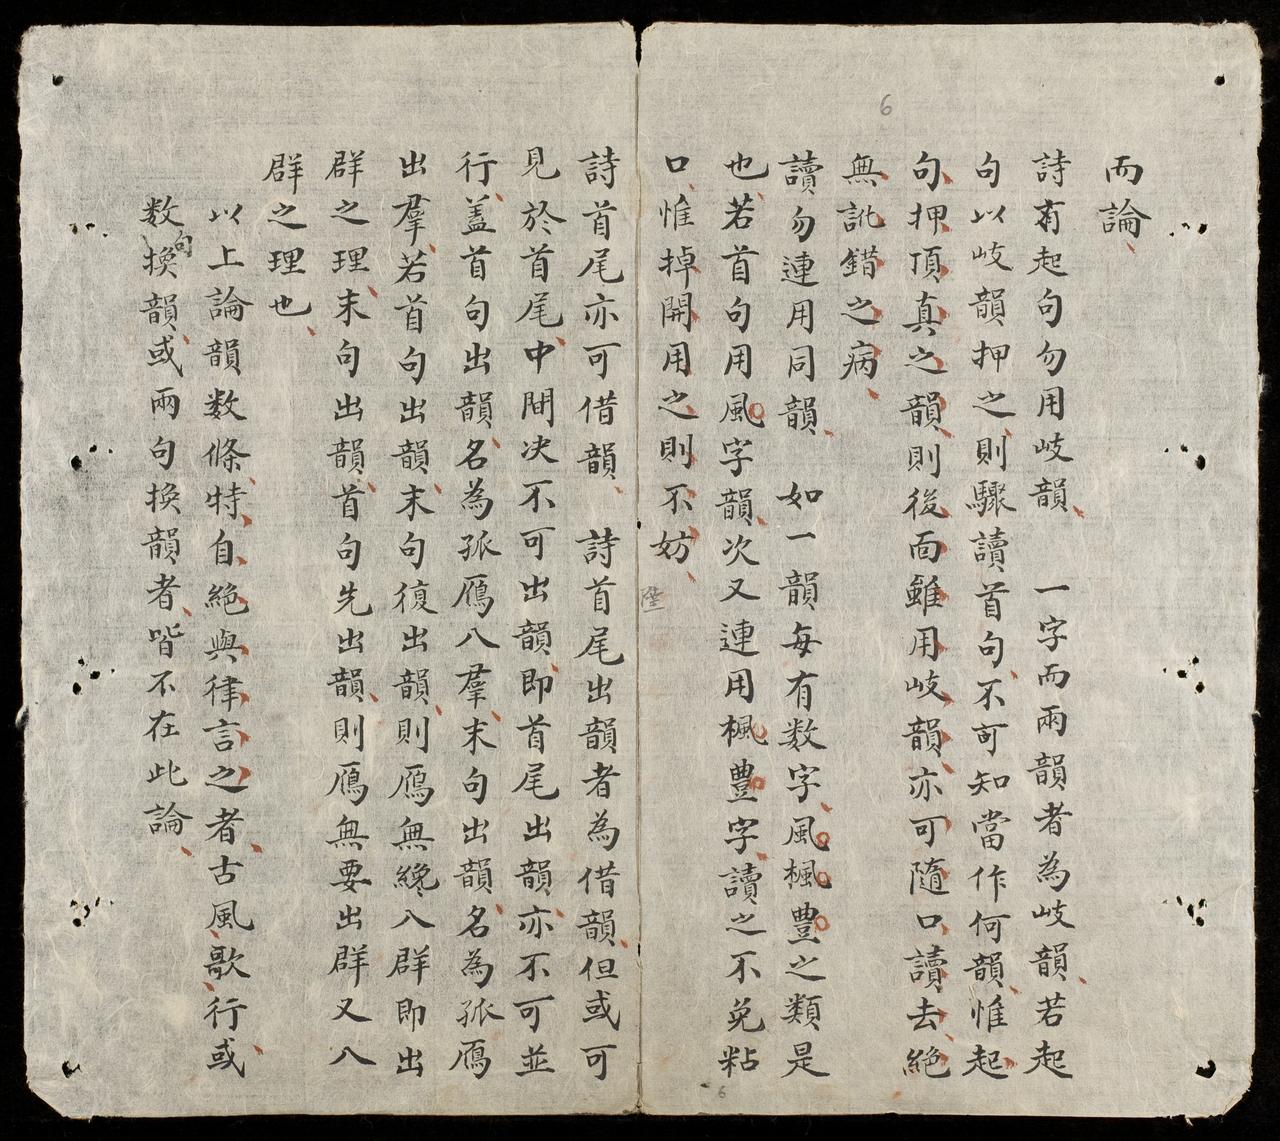 而論
詩有起句勿用岐韻　一字而兩韻者為岐韻若起
句以岐韻押之則驟讀首句不可知當作何韻惟起
句押頂真之韻則後面雖用岐韻亦可隨口讀去絕
無訛錯之病
讀勿連用同韻　如一韻每有数字風楓豊之類是
也若首句用風字韻次又連用楓豊字讀之不免粘
口惟掉開用之則不妨
詩首尾亦可借韻　詩首尾出韻者為借韻但或可
見於首尾中間决不可出韻即首尾出韻亦不可並
行盖首句出韻名為孤鴈八羣末句出韻名為孤鴈
出羣若首句出韻末句復出韻則鴈無纔八群即出
群之理末句出韻首句先出韻則鴈無要出群又八
群之理也
以上論韻数條特自絕與律言之者古風歌行或
数句換韻或兩句換韻者皆不在此論
6
6